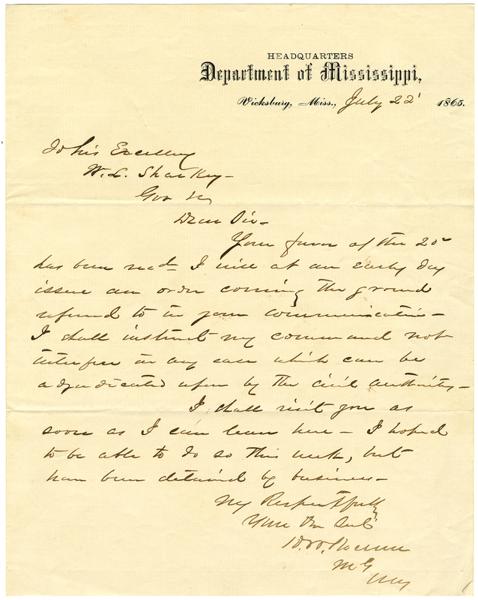 HEADQUARTERS
Department of Mississippi,
Vicksburg, Miss., July 22' 1865.
To his Excellency
W. L. Sharkey -
Gov &c
Dear Sir -
Your favor of the 20'
has been recd - I will at an early day
issue an order covering the ground
referred to in your communication -
I shall instruct my command not
interfere in any case which can be
adjudicated upon by the civil authority -
I shall visit you as
soon as I can leave here - I hoped
to be able to do so this week, but
have been detained by business -
Very Respectfully
Your Ob Svt
H. W. Slocum
M G